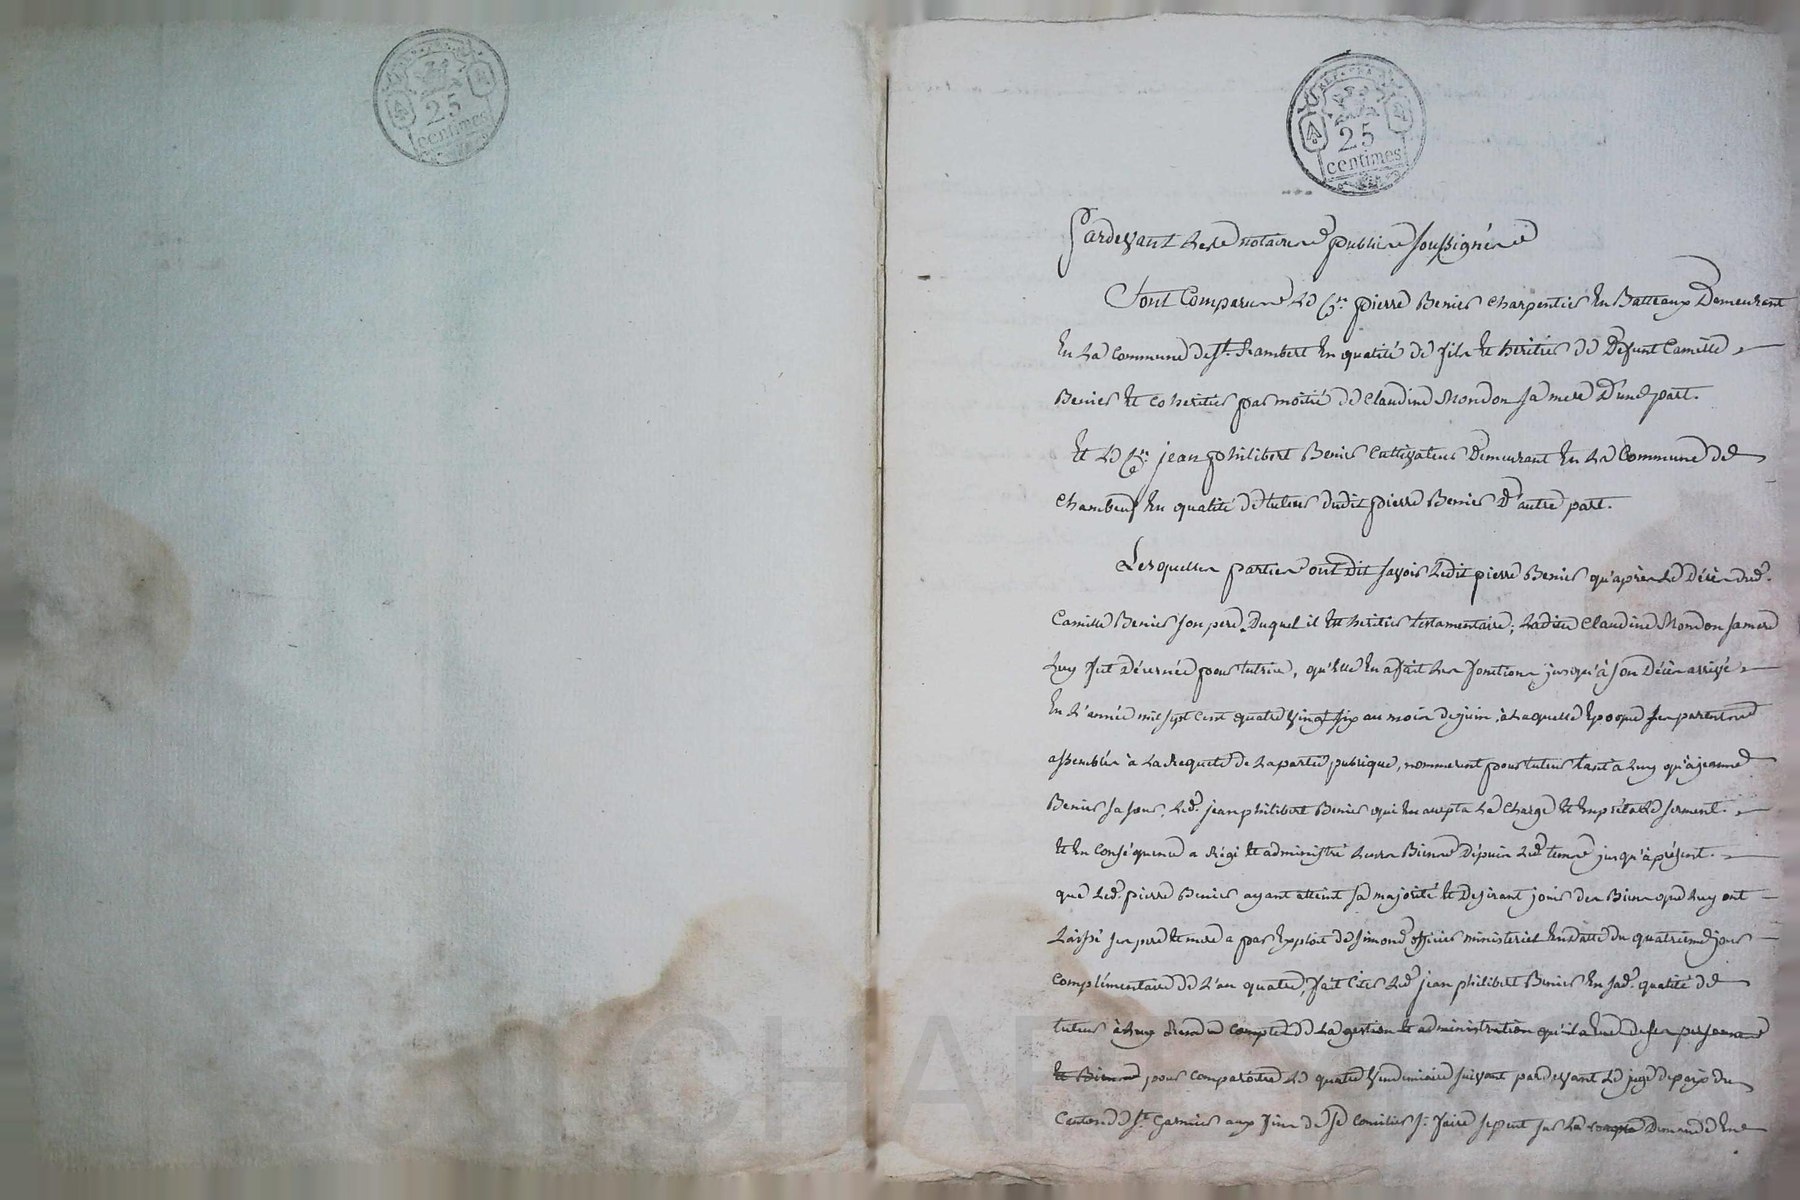 25
centimes
25
centimes
Pardevant les notaires publics soussignés
Sont Comparus Le Cen. pierre Benier charpentier En Batteaux Demeurant
En La Commune de St. Rambert En qualité de fils Et heritier de Defunt Camille
Benier Et Coheritier par moitié de Claudine Mondon sa mere D'une part.
Et Le Cen. jean philibert Benier Cultivateur Demeurant En La Commune de
Chambeuf En qualité de tuteur dudit pierre Benier D'autre part.
Lesquelles parties ont dit savoir Ledit pierre Benier qu'après Le Décès dud.
Camille Benier son pere, Duquel il Est heritier testamentaire; Ladite Claudine Mondon sa mere
Luy fut Décernée pour tutrice, qu'Elle En a fait Les fonctions jusqu'à son Décès arrivé
En L'année mil sept cent quatre vingt six au mois de juin, à Laquelle Epoque ses parents
assemblés à La Requete de La partie publique, nommerent pour tuteur tant à Luy qu'à jeanne
Benier sa sœur, Led. jean philibert Benier qui En accepta La Charge Et En preta Le serment.
Et En Conséquence a Régi Et administré Leurs Biens Dépuis Led. tems jusqu'à présent.
que Led. pierre Benier ayant atteint sa majorité Et Desirant jouir des Biens que Luy ont
Laissé ses pere Et mere a par Exploit de Simond officier ministeriel En datte du quatrieme jour
Complémentaire de L'an quatre, fait Citer Led. jean philibert Benier En sad. qualité de
tuteur à Luy Rendre compte de La gestion Et administration qu'il a Eue de ses personne
Et Biens pour comparoitre Le quatre Vendimiaire suivant pardevant Le juge de paix du
Canton de St. Garmier aux fins de se Concilier si faire se peut sur La compte Demande En